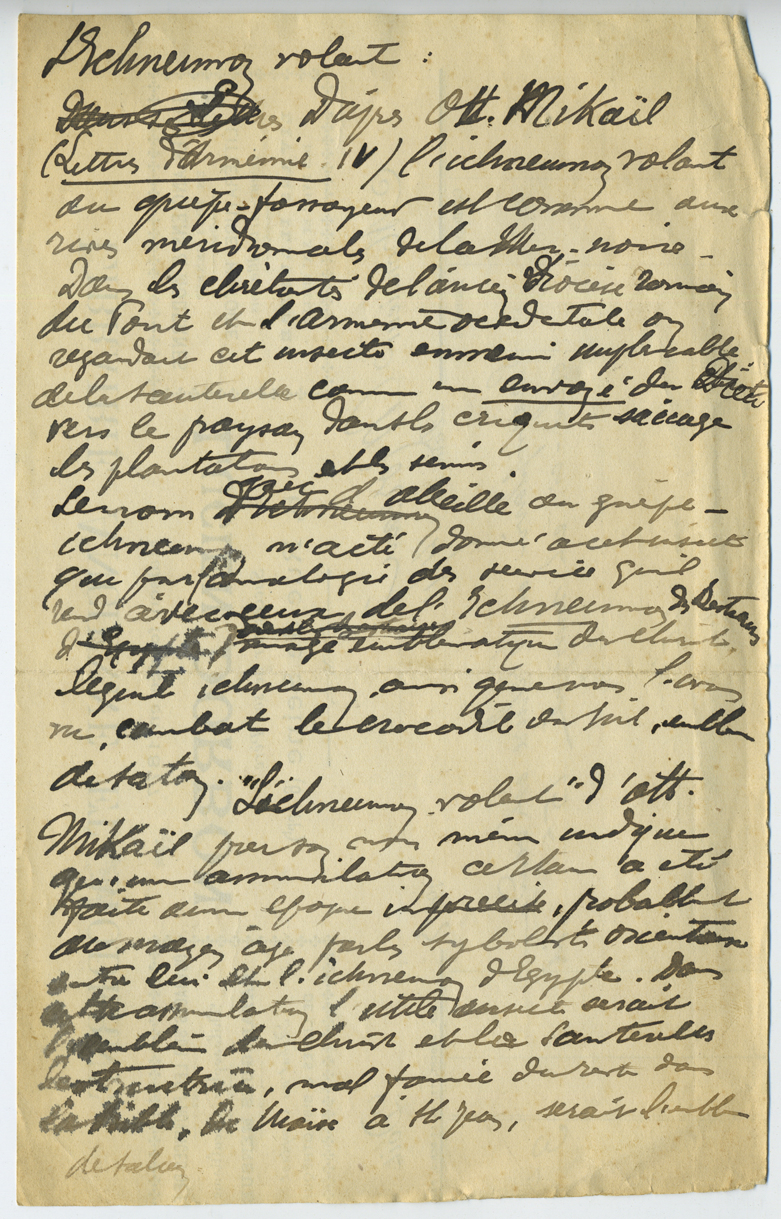 L'Ichneumon volant :
D'après Ott. Mikaël
(Lettres d'Arménie. IV) l'ichneumon volant
ou guêpe-fossoyeur est commune aux
rives méridionales de la Mer-noire.
Dans les chrétientés de l'ancien Diocèse romain
du Pont et de l'Arménie occidentale on
regardait cet insecte ennemi implacable
de la sauterelle comme un envoyé du
vers le paysan dont les criquets saccage
les plantations et les semis.
Le nom d'abeille ou guêpe-
ichneumon n'a été donné à cet insecte
que par analogie des service qu'il
rend avec ceux de l'Ichneumon des Bestiaires
d'Egypte, image emblématique du Christ.
ichneumon, ainsi que nous l'avons
vu, combat le crocodile du Nil, emblème
de satan. "L'ichneumon volant" d'Ott.
Mikaël par son nom même indique
qu'une assimilation certaine a été
faite à une époque imprécise, probablement
au moyen âge par les symbolistes orientaux
entre lui et l'ichneumon d'Egypte. Dans
cette assimilation l'utile insecte serait
l'emblème du Christ et la sauterelle
destructrice, mal famée du reste dans
la Bible, de Moïse à St Jean, serait l'emblème
de satan.